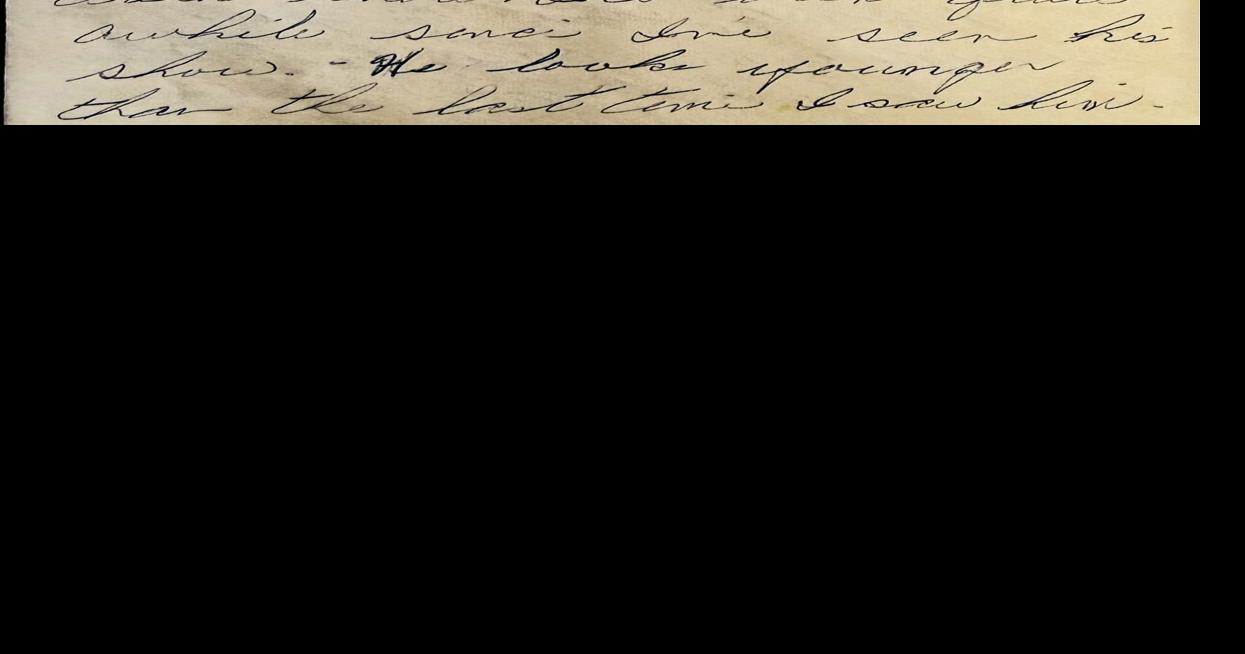 awhile since I've seen his
show. - He looks younger
than the last time I saw him -